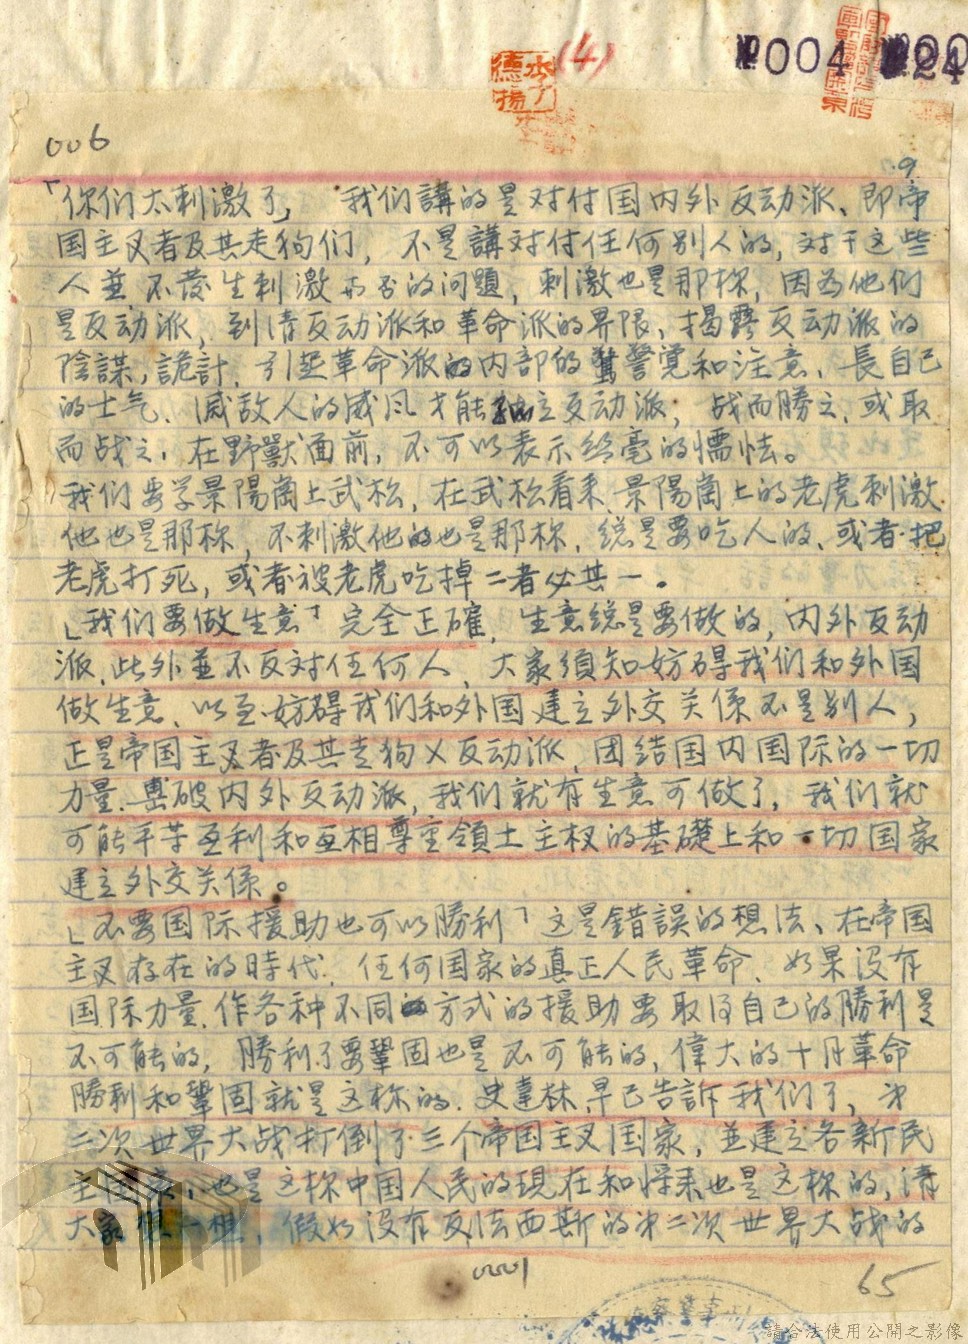 (4)
№004
006
9
「你们太刺激了」 我们講的是对付国内外反动派、即帝
国主义者及其走狗们, 不是講对付任何别人的, 对于这些
人並不发生刺激与否的问題, 刺激也是那样, 因为他们
是反动派, 划清反动派和革命派的界限, 揭露反动派的
陰謀, 詭計, 引起革命派的内部的警覚和注意、長自己
的士气、滅敌人的威风才能孤立反动派, 战而勝之、或取
而战之, 在野獸面前, 不可以表示丝毫的懦怯。
我们要学景陽崗上武松, 在武松看来, 景陽崗上的老虎刺激
他也是那样, 不刺激他的也是那样, 総是要吃人的、或者把
老虎打死, 或者被老虎吃掉二者必其一。
「我们要做生意」完全正確, 生意総是要做的, 内外反动
派, 此外並不反对任何人、大家須知妨碍我们和外国
做生意、以至妨碍我们和外国建立外交关係不是别人,
正是帝国主义者及其走狗X反动派, 团结国内国际的一切
力量, 擊破内外反动派, 我们就有生意可做了, 我们就
可能平等互利和互相尊重領土主权的基礎上和一切国家
建立外交关係。
「不要国际援助也可以勝利」这是錯誤的想法、在帝国
主义存在的時代, 任何国家的真正人民革命、如果没有
国际力量, 作各种不同方式的援助要取得自己的勝利是
不可能的, 勝利了要鞏固也是不可能的, 偉大的十月革命
勝利和鞏固就是这样的, 史達林早已告訴我们了, 第
二次世界大战打倒了三个帝国主义国家, 並建立各新民
主国家, 也是这样中国人民的現在和将来也是这样的, 請
大家想一想, 假如没有反法西斯的第二次世界大战的
65
請合法使用公開之影像